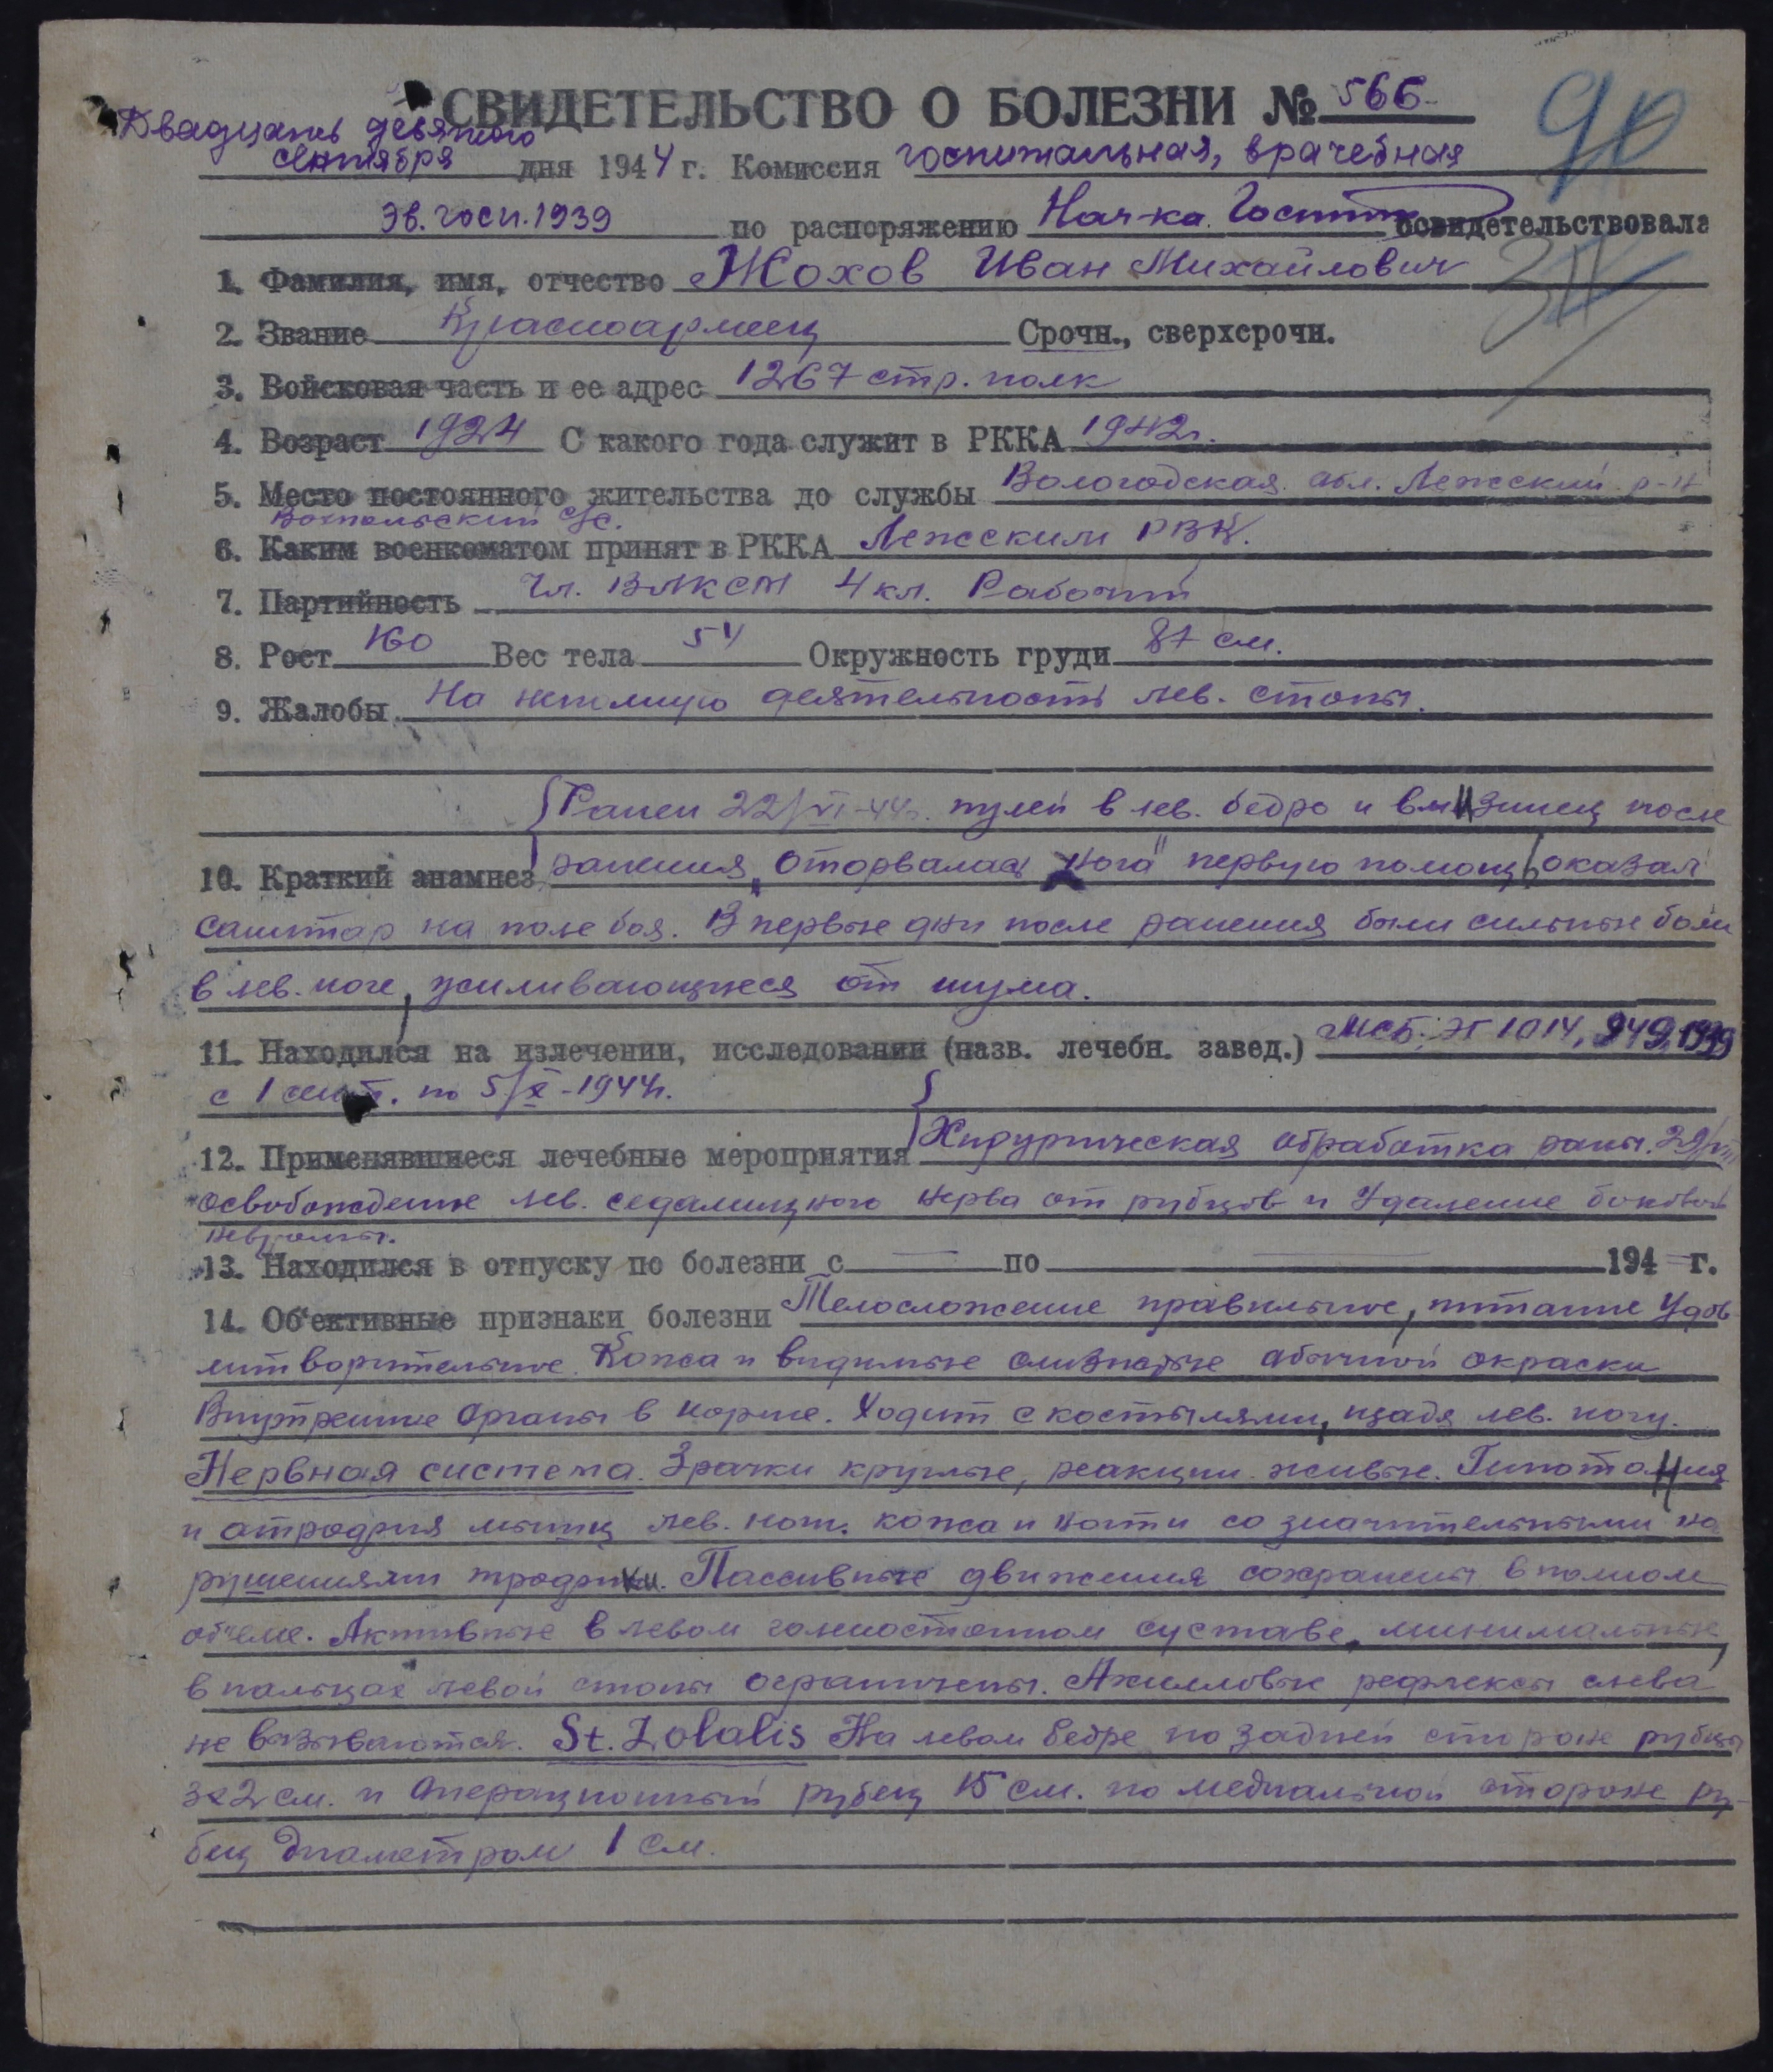 СВИДЕТЕЛЬСТВО О БОЛЕЗНИ № 566
90
Двадцать девятого
сентября дня 1944 г. Комиссия госпитальная, врачебная
Эв. госп. 1939 по распоряжению Нач-ка Госпит освидетельствовала
1. Фамилия, имя, отчество Жохов Иван Михайлович
2. Звание Красноармеец Срочн., сверхсрочн.
3. Войсковая часть и ее адрес 1267 стр. полк
4. Возраст 1924 С какого года служит в РККА 1942г.
5. Место постоянного жительства до службы Вологодская обл. Лежский р-н
с/с.
6. Каким военкоматом принят в РККА Лежским РВК.
7. Партийность Чл. ВЛКСМ 4 кл. Рабочий
8. Рост 160 Вес тела 54 Окружность груди 87 см.
9. Жалобы На неполную деятельность лев. стопы.
Ранен 22/VI-44г. пулей в лев. бедро и в мизинец после
10. Краткий анамнез ранения „оторвалась нога" первую помощь оказал
санитар на поле боя. В первые дни после ранения были сильные боли
в лев. ноге, усиливающиеся от шума.
11. Находился на излечении, исследовании (назв. лечебн. завед.) МСБ; ЭГ 1014, 949, 1939
с 1 сент. по 5/X-1944г.
12. Применявшиеся лечебные мероприятия Хирургическая обработка раны. 29/VIII
освобождение лев. седалищного нерва от рубцов и Удаление боковой
невромы.
13. Находился в отпуску по болезни с — по — 194 — г.
14. Об'ективные признаки болезни Телосложение правильное, питание Удов-
литворительное. Кожа и видимые слизистые обычной окраски
Внутренние Органы в норме. Ходит с костылями, щадя лев. ногу.
Нервная система. Зрачки круглые, реакции живые. Гипотония
и атрофия мышц лев. ноги. кожа и ногти со значительными на
рушениями трофики. Пассивные движения сохранены в полном
об'еме. Активные в левом голеностопном суставе, минимальные,
в пальцах левой стопы ограничены. Ахилловые рефлексы слева
не вызываются. St. Lolalis На левом бедре по задней стороне рубцы
3х2 см. и Операционный рубец 15 см. по медиальной стороне ру-
бец диаметром 1 см.